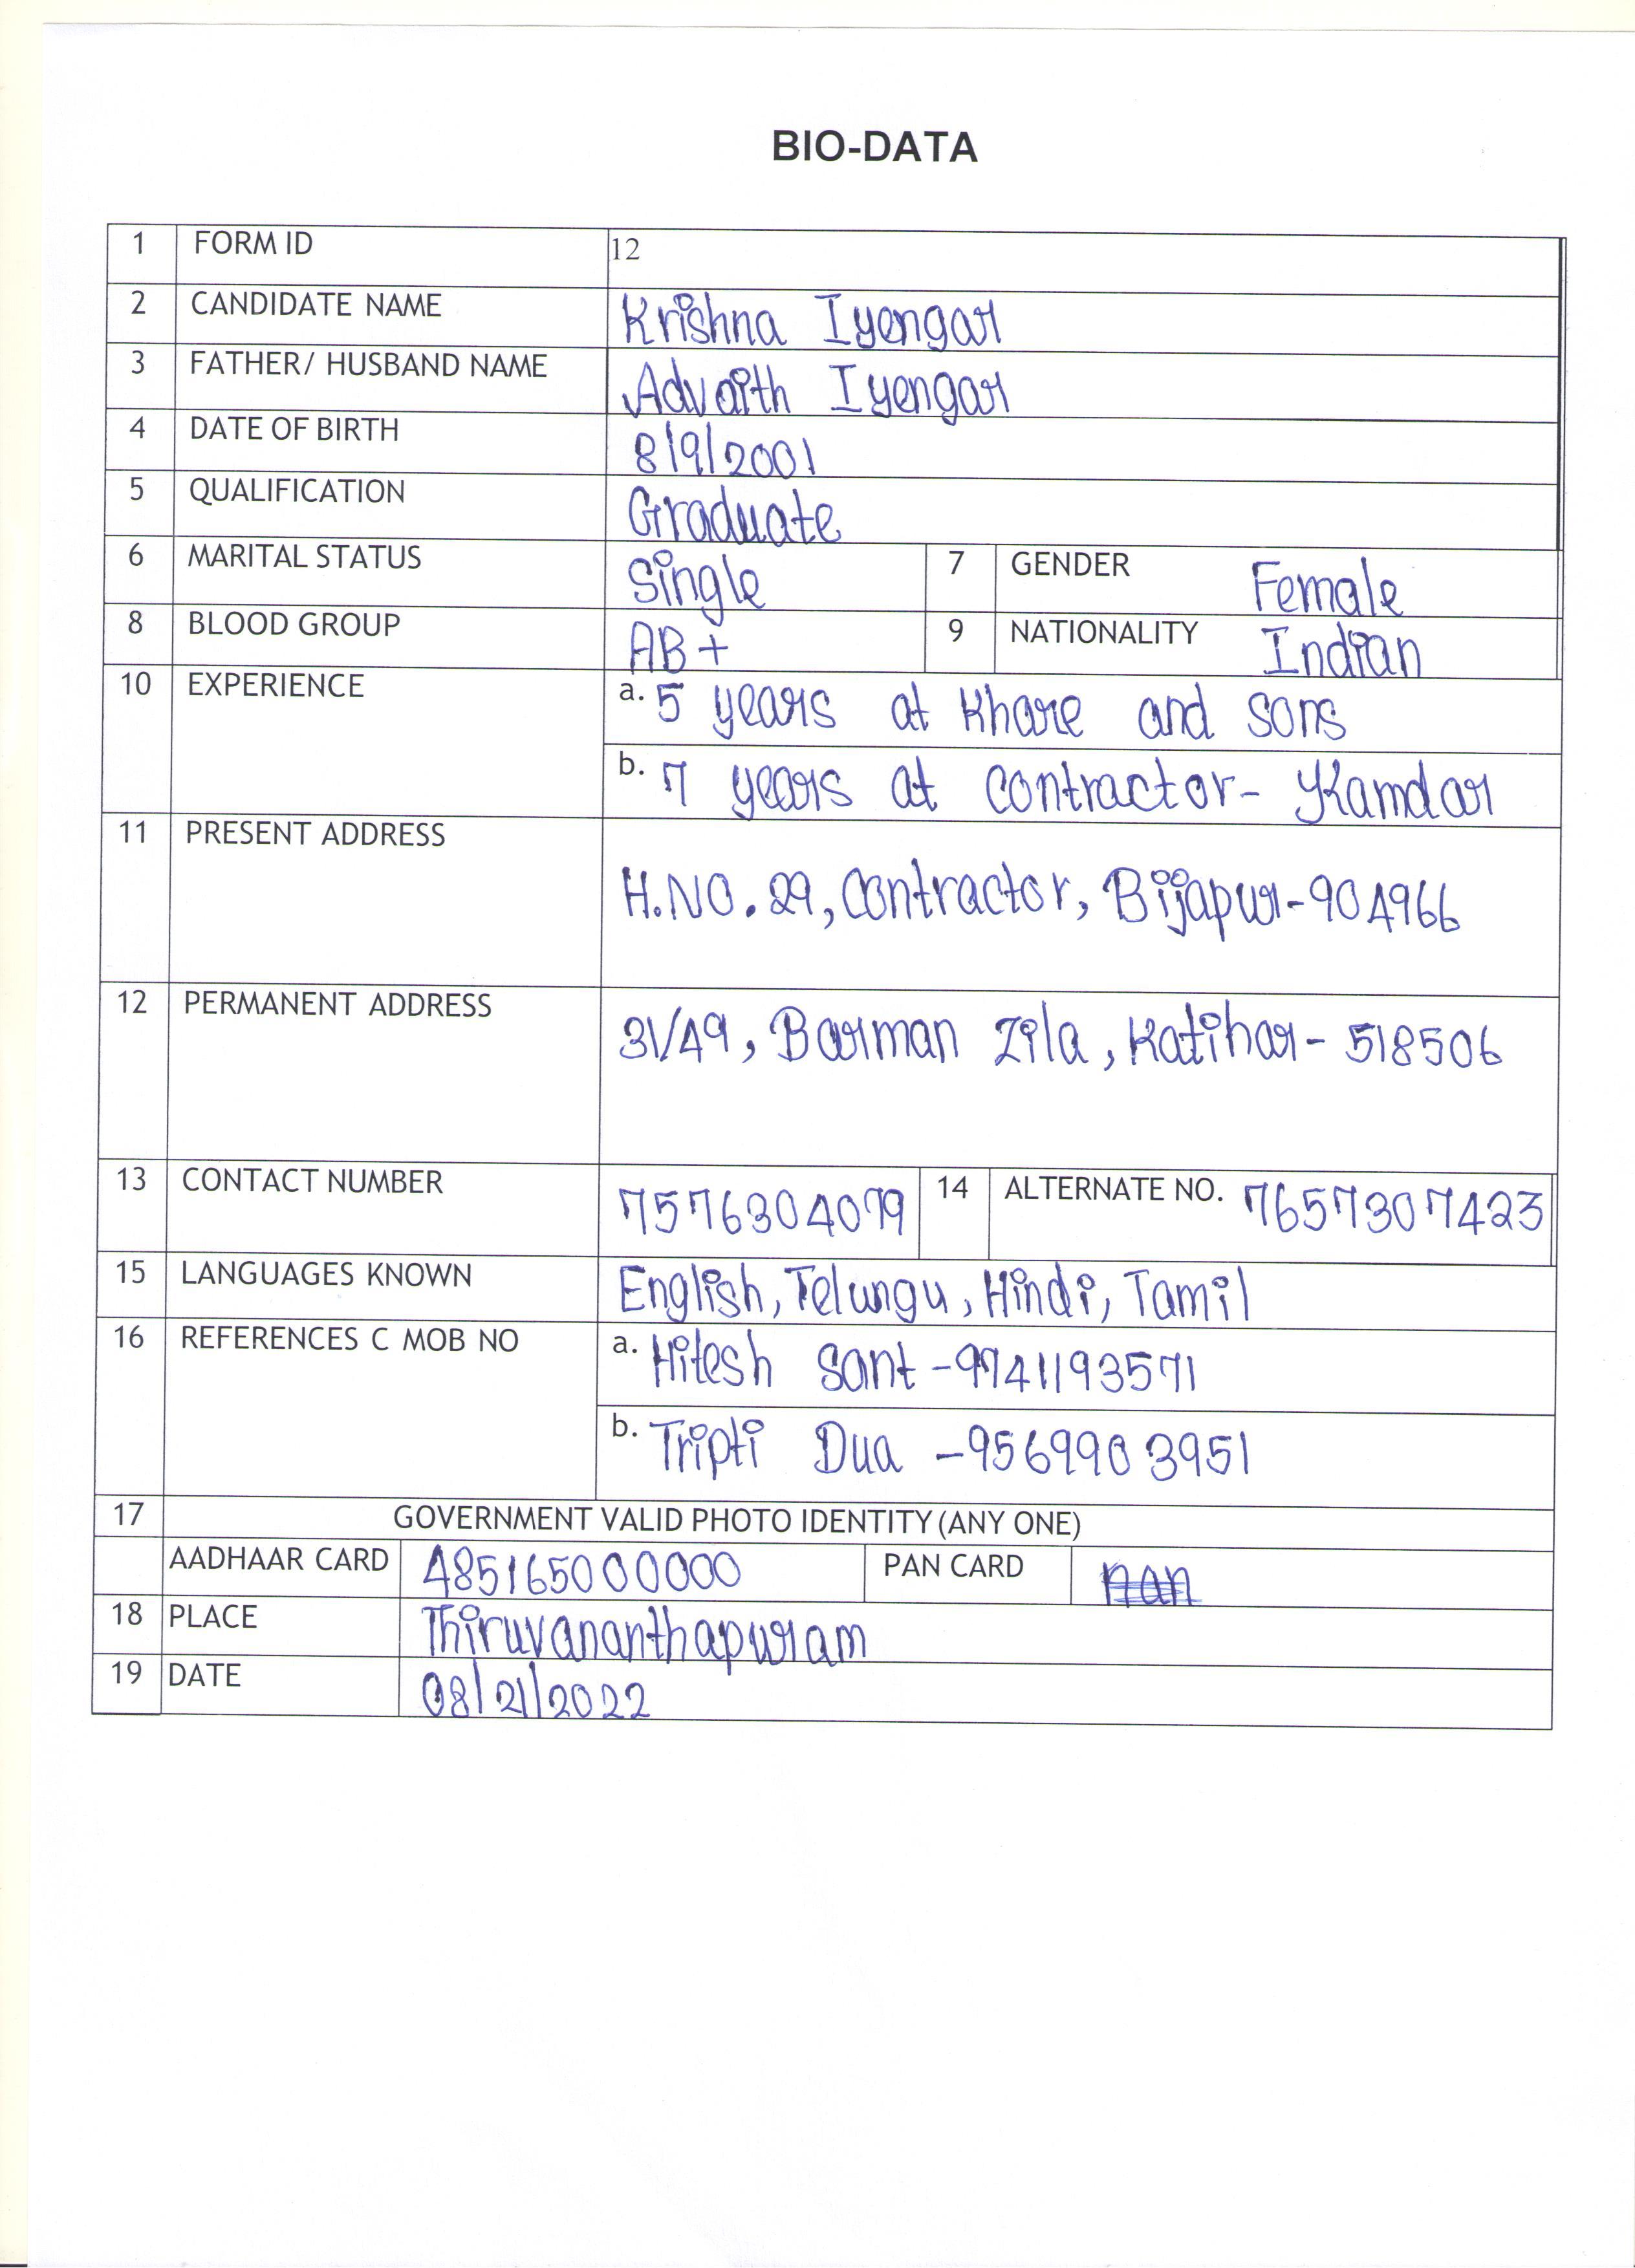 BIO-DATA
1 FORM ID 12
2 CANDIDATE NAME Krishna Iyengar
3 FATHER/ HUSBAND NAME Advaith Iyengar
4 DATE OF BIRTH 8/9/2001
5 QUALIFICATION Graduate
6 MARITAL STATUS Single 7 GENDER Female
8 BLOOD GROUP AB+ 9 NATIONALITY Indian
10 EXPERIENCE a. 5 years at Khare and sons
b. 7 years at contractor- Kamdar
11 PRESENT ADDRESS H.NO. 29, Contractor, Bijapur-904966
12 PERMANENT ADDRESS 31/49, Barman Zila, Katihar- 518506
13 CONTACT NUMBER 7576304079 14 ALTERNATE NO. 7657307423
15 LANGUAGES KNOWN English, Telungu, Hindi, Tamil
16 REFERENCES C MOB NO a. Hitesh Sant -9741193571
b. Tripti Dua -9569903951
17 GOVERNMENT VALID PHOTO IDENTITY (ANY ONE)
AADHAAR CARD 485165000000 PAN CARD
18 PLACE Thiruvananthapuram
19 DATE 08/21/2022